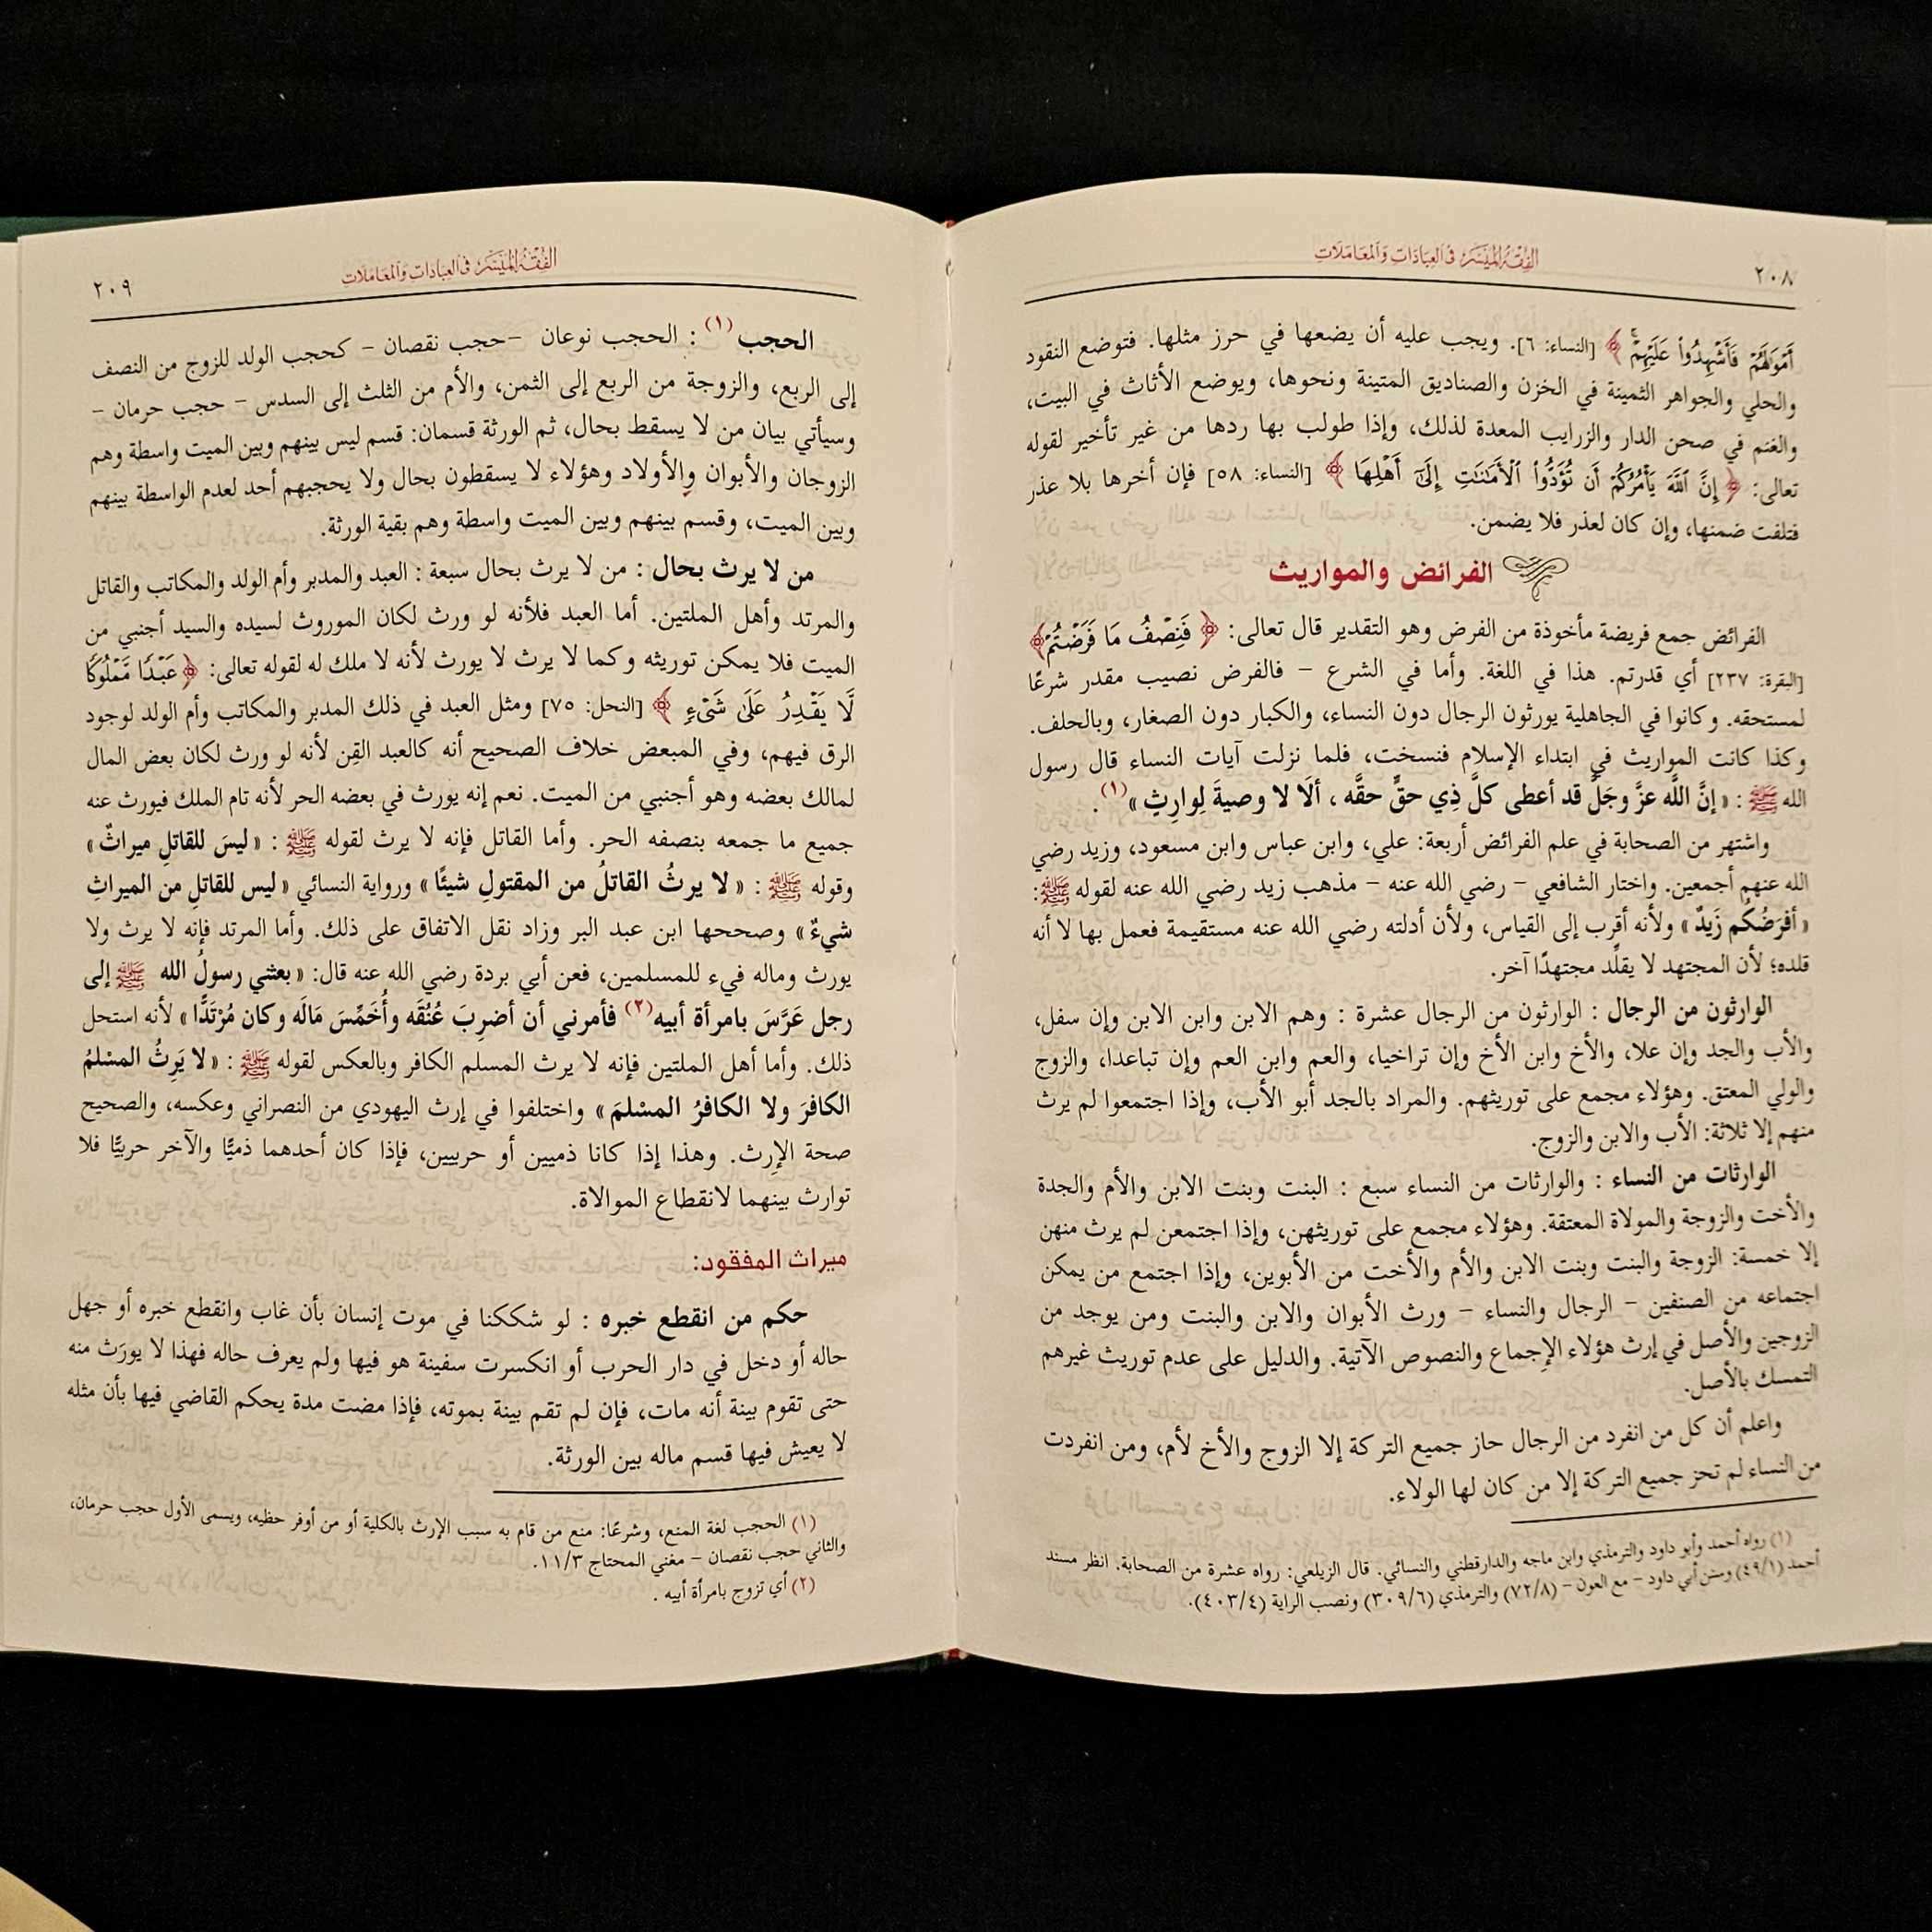 ٢٠٨
الفقه الميسر في العبادات والمعاملات
أَمْوَٰلَهُمْ فَأَشْهِدُوا۟ عَلَيْهِمْ ۚ ﴾ [النساء: ٦]. ويجب عليه أن يضعها في حرز مثلها. فتوضع النقود
والحلي والجواهر الثمينة في الخزن والصناديق المتينة ونحوها، ويوضع الأثاث في البيت،
والغنم في صحن الدار والزرايب المعدة لذلك، وإذا طولب بها ردها من غير تأخير لقوله
تعالى: ﴿ إِنَّ ٱللَّهَ يَأْمُرُكُمْ أَن تُؤَدُّوا۟ ٱلْأَمَٰنَٰتِ إِلَىٰٓ أَهْلِهَا ﴾ [النساء: ٥٨] فإن أخرها بلا عذر
فتلفت ضمنها، وإن كان لعذر فلا يضمن.
الفرائض والمواريث
الفرائض جمع فريضة مأخوذة من الفرض وهو التقدير قال تعالى: ﴿ فَنِصْفُ مَا فَرَضْتُمْ﴾
[البقرة: ٢٣٧] أي قدرتم. هذا في اللغة. وأما في الشرع – فالفرض نصيب مقدر شرعًا
لمستحقه. وكانوا في الجاهلية يورثون الرجال دون النساء، والكبار دون الصغار، وبالحلف.
وكذا كانت المواريث في ابتداء الإسلام فنسخت، فلما نزلت آيات النساء قال رسول
الله ﷺ : « إنَّ اللَّه عزَّ وجَلَّ قد أعطى كلَّ ذِي حقٍّ حقَّه ، ألَا لا وصيةَ لِوارِثٍ »(١).
واشتهر من الصحابة في علم الفرائض أربعة: علي، وابن عباس وابن مسعود، وزيد رضي
الله عنهم أجمعين. واختار الشافعي – رضي الله عنه – مذهب زيد رضي الله عنه لقوله ﷺ:
« أفرَضُكُم زَيدٌ » ولأنه أقرب إلى القياس، ولأن أدلته رضي الله عنه مستقيمة فعمل بها لا أنه
قلده؛ لأن المجتهد لا يقلِّد مجتهدًا آخر.
الوارثون من الرجال : الوارثون من الرجال عشرة : وهم الابن وابن الابن وإن سفل،
والأب والجد وإن علا، والأخ وابن الأخ وإن تراخيا، والعم وابن العم وإن تباعدا، والزوج
والولي المعتق. وهؤلاء مجمع على توريثهم. والمراد بالجد أبو الأب، وإذا اجتمعوا لم يرث
منهم إلا ثلاثة: الأب والابن والزوج.
الوارثات من النساء : والوارثات من النساء سبع : البنت وبنت الابن والأم والجدة
والأخت والزوجة والمولاة المعتقة. وهؤلاء مجمع على توريثهن، وإذا اجتمعن لم يرث منهن
إلا خمسة: الزوجة والبنت وبنت الابن والأم والأخت من الأبوين، وإذا اجتمع من يمكن
اجتماعه من الصنفين – الرجال والنساء – ورث الأبوان والابن والبنت ومن يوجد من
الزوجين والأصل في إرث هؤلاء الإجماع والنصوص الآتية. والدليل على عدم توريث غيرهم
التمسك بالأصل.
واعلم أن كل من انفرد من الرجال حاز جميع التركة إلا الزوج والأخ لأم، ومن انفردت
من النساء لم تحز جميع التركة إلا من كان لها الولاء.
(١) رواه أحمد وأبو داود والترمذي وابن ماجه والدارقطني والنسائي. قال الزيلعي: رواه عشرة من الصحابة. انظر مسند
أحمد (٤٩/١) وسنن أبي داود – مع العون – (٧٢/٨) والترمذي (٣٠٩/٦) ونصب الراية (٤٠٣/٤).
الفقه الميسر في العبادات والمعاملات
٢٠٩
الحجب(١) : الحجب نوعان –حجب نقصان – كحجب الولد للزوج من النصف
إلى الربع، والزوجة من الربع إلى الثمن، والأم من الثلث إلى السدس – حجب حرمان –
وسيأتي بيان من لا يسقط بحال، ثم الورثة قسمان: قسم ليس بينهم وبين الميت واسطة وهم
الزوجان والأبوان والأولاد وهؤلاء لا يسقطون بحال ولا يحجبهم أحد لعدم الواسطة بينهم
وبين الميت، وقسم بينهم وبين الميت واسطة وهم بقية الورثة.
من لا يرث بحال : من لا يرث بحال سبعة : العبد والمدبر وأم الولد والمكاتب والقاتل
والمرتد وأهل الملتين. أما العبد فلأنه لو ورث لكان الموروث لسيده والسيد أجنبي من
الميت فلا يمكن توريثه وكما لا يرث لا يورث لأنه لا ملك له لقوله تعالى: ﴿ عَبْدًا مَّمْلُوكًا
لَّا يَقْدِرُ عَلَىٰ شَىْءٍ ﴾ [النحل: ٧٥] ومثل العبد في ذلك المدبر والمكاتب وأم الولد لوجود
الرق فيهم، وفي المبعض خلاف الصحيح أنه كالعبد القِن لأنه لو ورث لكان بعض المال
لمالك بعضه وهو أجنبي من الميت. نعم إنه يورث في بعضه الحر لأنه تام الملك فيورث عنه
جميع ما جمعه بنصفه الحر. وأما القاتل فإنه لا يرث لقوله ﷺ : « ليسَ للقاتلِ ميراثٌ »
وقوله ﷺ : « لا يرثُ القاتلُ من المقتولِ شيئًا » ورواية النسائي « ليس للقاتلِ من الميراثِ
شيءٌ » وصححها ابن عبد البر وزاد نقل الاتفاق على ذلك. وأما المرتد فإنه لا يرث ولا
يورث وماله فيء للمسلمين، فعن أبي بردة رضي الله عنه قال: « بعثني رسولُ الله ﷺ إلى
رجل عَرَّسَ بامرأة أبيه(٢) فأمرني أن أضرِبَ عُنُقَه وأُخَمِّسَ مَالَه وكان مُرْتَدًّا » لأنه استحل
ذلك. وأما أهل الملتين فإنه لا يرث المسلم الكافر وبالعكس لقوله ﷺ : « لا يَرِثُ المسْلمُ
الكافرَ ولا الكافرُ المسْلمَ » واختلفوا في إرث اليهودي من النصراني وعكسه، والصحيح
صحة الإرث. وهذا إذا كانا ذميين أو حربيين، فإذا كان أحدهما ذميًّا والآخر حربيًّا فلا
توارث بينهما لانقطاع الموالاة.
ميراث المفقود:
حكم من انقطع خبره : لو شككنا في موت إنسان بأن غاب وانقطع خبره أو جهل
حاله أو دخل في دار الحرب أو انكسرت سفينة هو فيها ولم يعرف حاله فهذا لا يورَث منه
حتى تقوم بينة أنه مات، فإن لم تقم بينة بموته، فإذا مضت مدة يحكم القاضي فيها بأن مثله
لا يعيش فيها قسم ماله بين الورثة.
(١) الحجب لغة المنع، وشرعًا: منع من قام به سبب الإرث بالكلية أو من أوفر حظيه، ويسمى الأول حجب حرمان،
والثاني حجب نقصان – مغني المحتاج ١١/٣.
(٢) أي تزوج بامرأة أبيه .